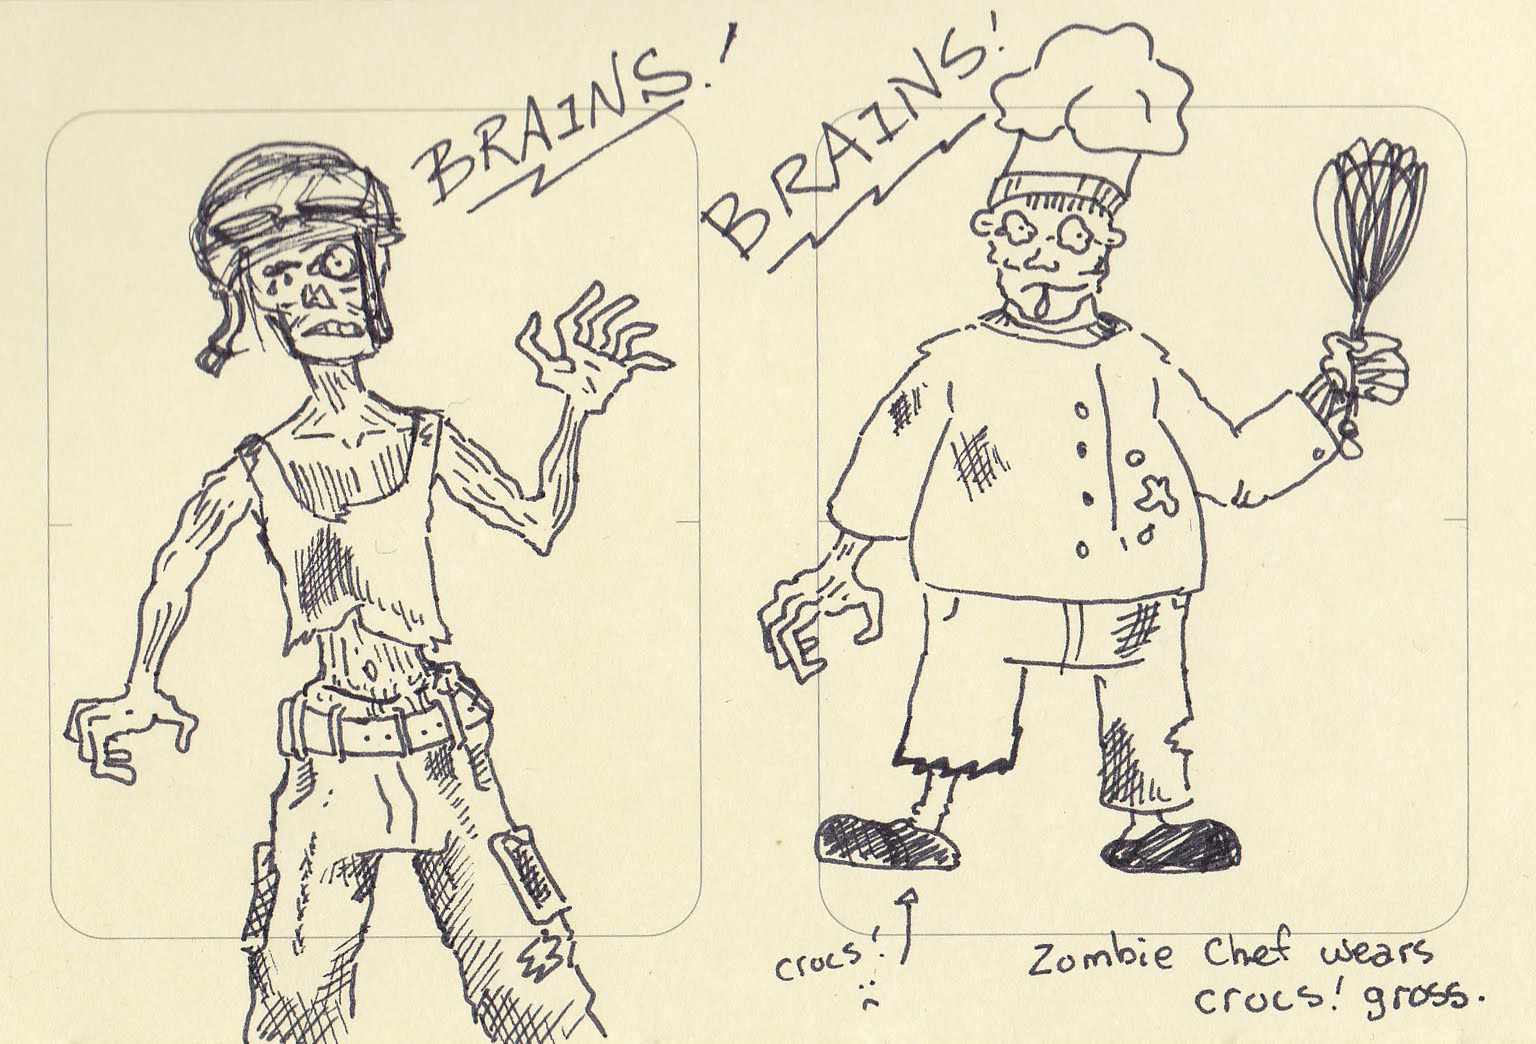 BRAINS!
BRAINS!
crocs!
:(
Zombie Chef wears
crocs! gross.